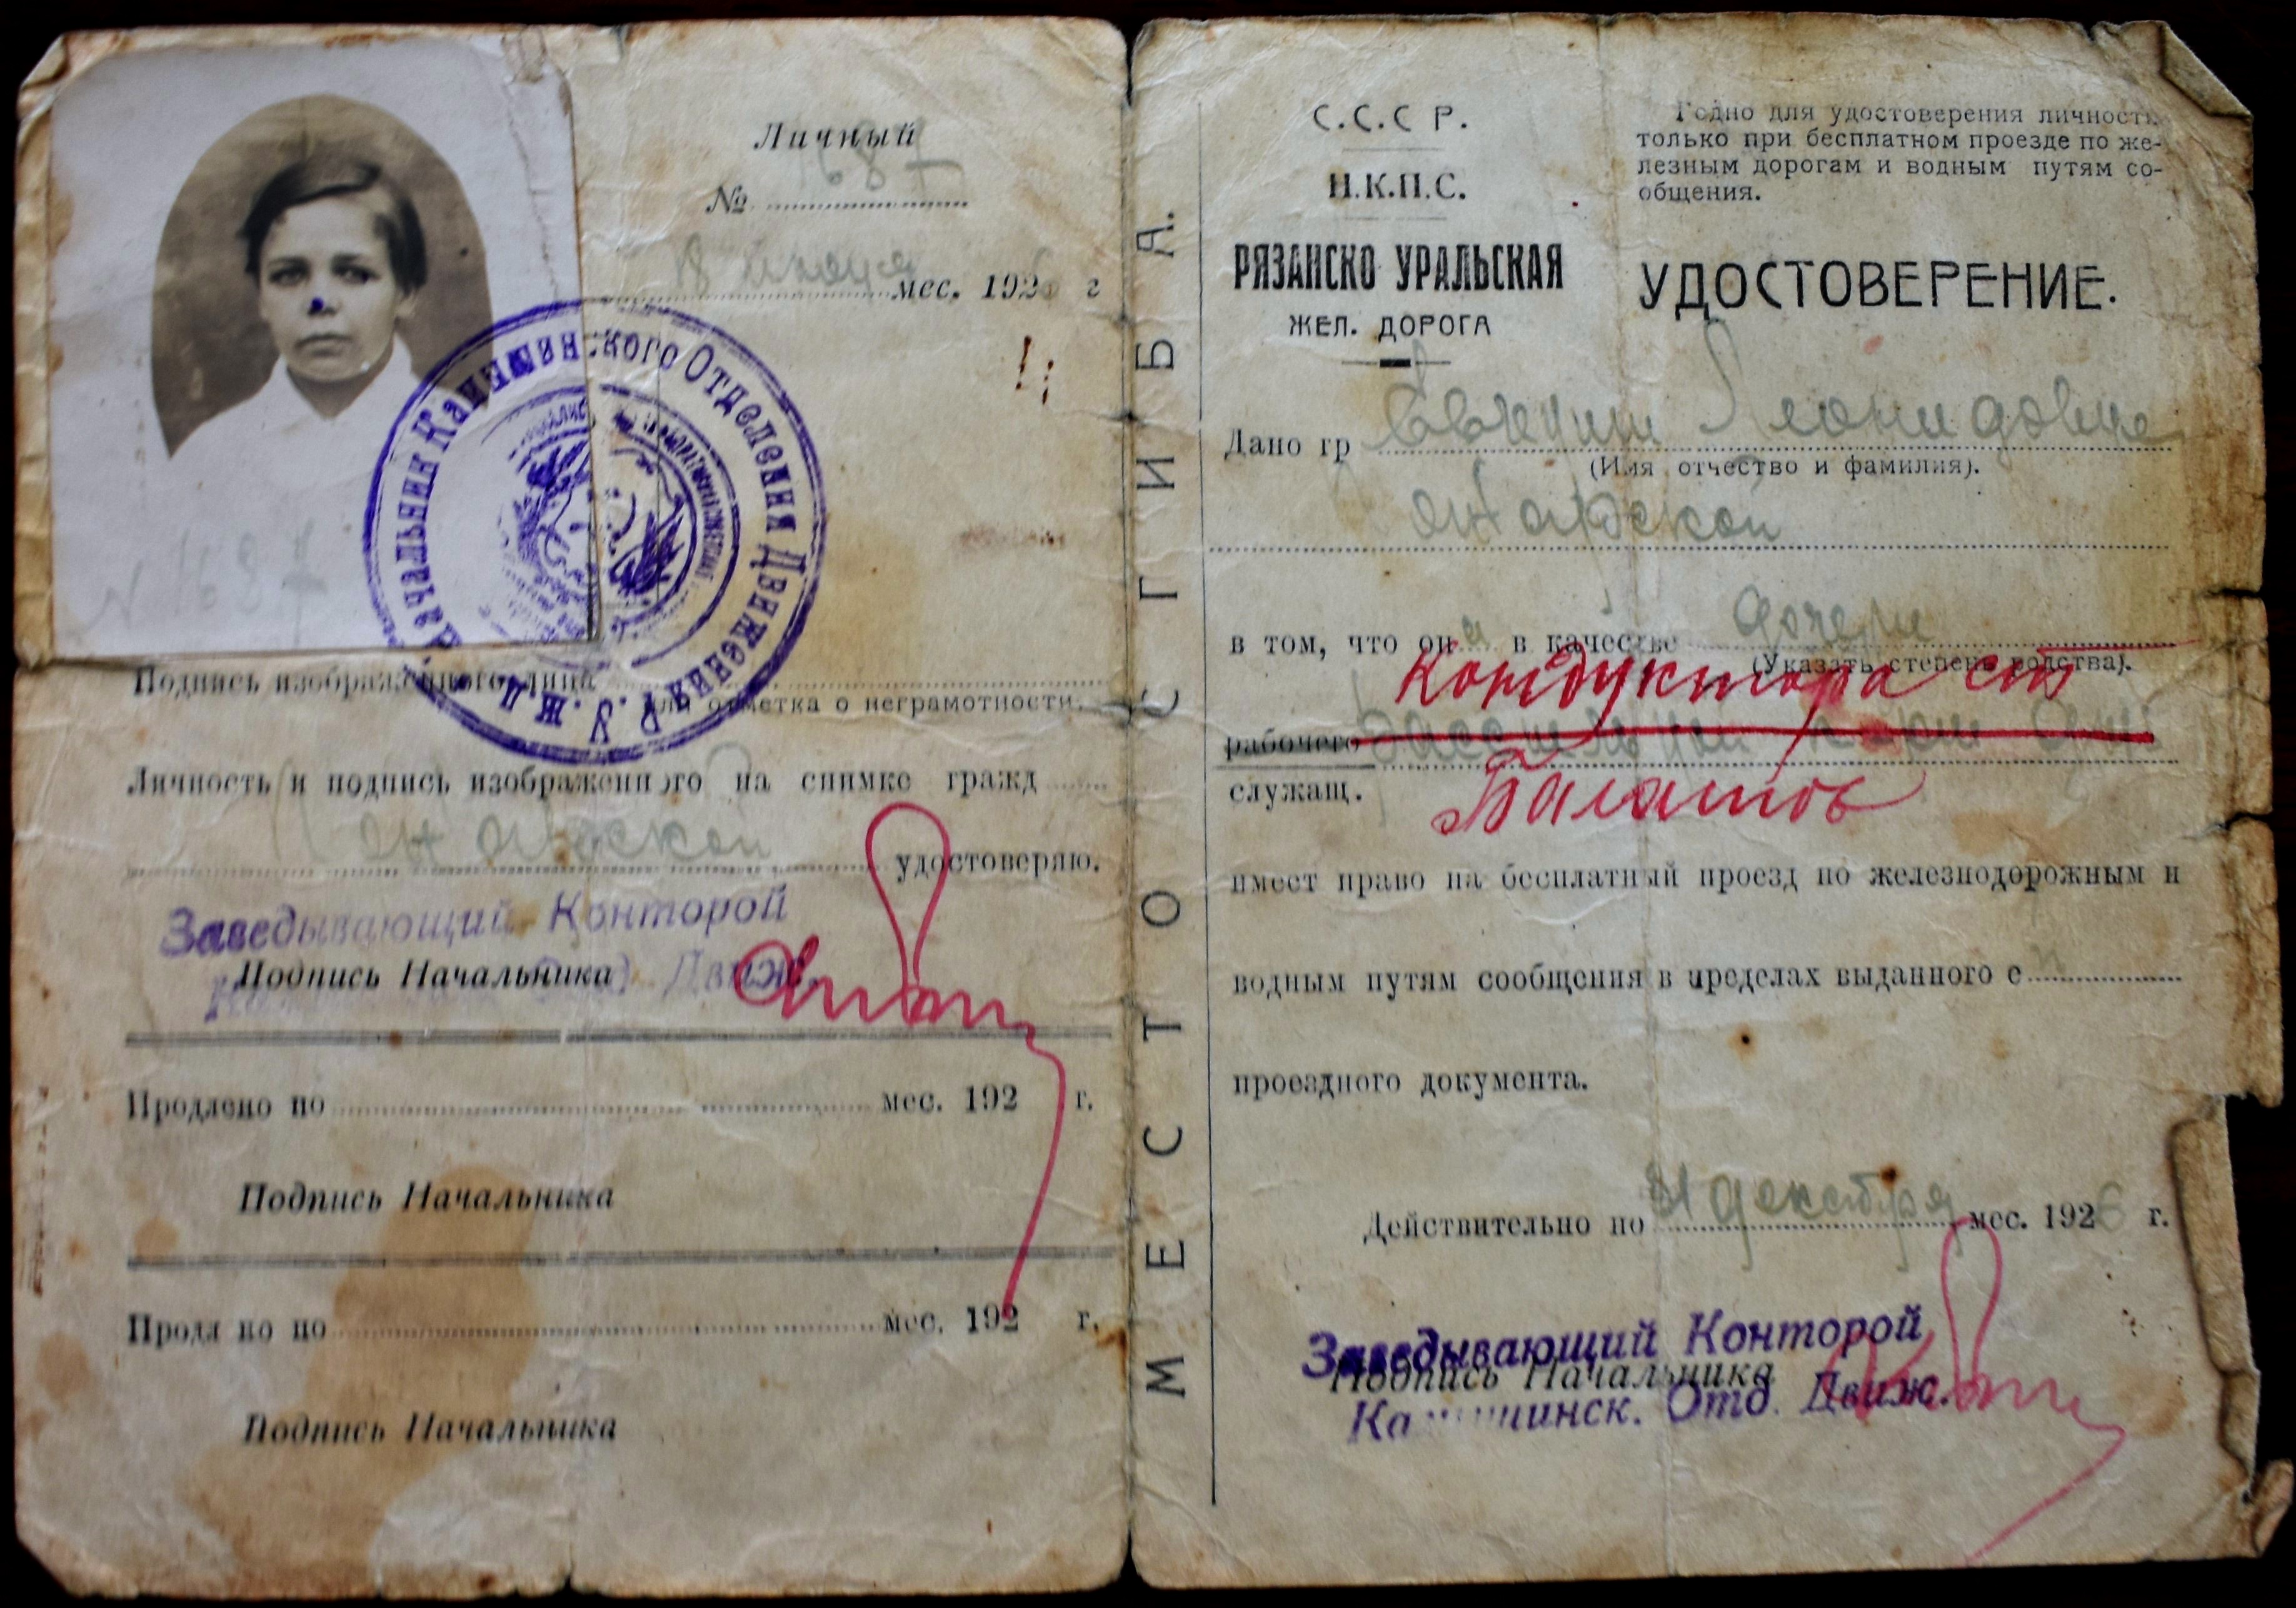 Личный
№ 1687
18 июня мес. 1926 г
N 1687
Начальник Камышинского Отделения Движения Р.У.ж.д.
Подпись изображенного лица
или отметка о неграмотности.
Личность и подпись изображенного на снимке гражд
удостоверяю.
Заведывающий Конторой
Подпись Начальника
Движ.
Продлено по мес. 192 г.
Подпись Начальника
Продл но по мес. 192 г.
Подпись Начальника
МЕСТО СГИБА.
С.С.С Р.
Н.К.П.С.
РЯЗАНСКО УРАЛЬСКАЯ
ЖЕЛ. ДОРОГА
Годно для удостоверения личности
только при бесплатном проезде по же-
лезным дорогам и водным путям со-
общения.
УДОСТОВЕРЕНИЕ.
Дано гр Евгении Леонидовне
(Имя отчество и фамилия).
в том, что она в качестве дочери
(Указать степень родства).
Кондуктора ст
рабочего
служащ.
Балашов
имеет право на бесплатный проезд по железнодорожным и
водным путям сообщения в пределах выданного е
проездного документа.
Действительно по 31 декабря мес. 1926 г.
Заведывающий Конторой
Подпись Начальника
Камышинск. Отд. Движ.